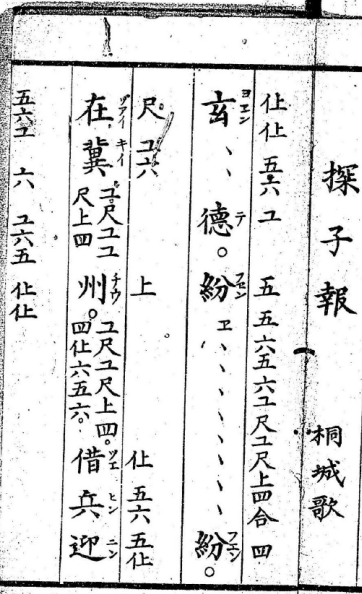 探子報 桐城歌
仩仩 五六 ユ 五 五六五六ユ尺ユ尺上四合 四
玄ヨエン、、德テ。紛フエンヱ、、、、、、、紛フエン。
尺。ユ六 上 仩 五六 五仩
在ヅアイ冀キイ ユ。尺ユユ尺上四 州チウ。ユ尺ユ尺上四。四仩六五六。借ツエ兵ヒン迎ニン
五六ユ 六 ユ六五 仩仩